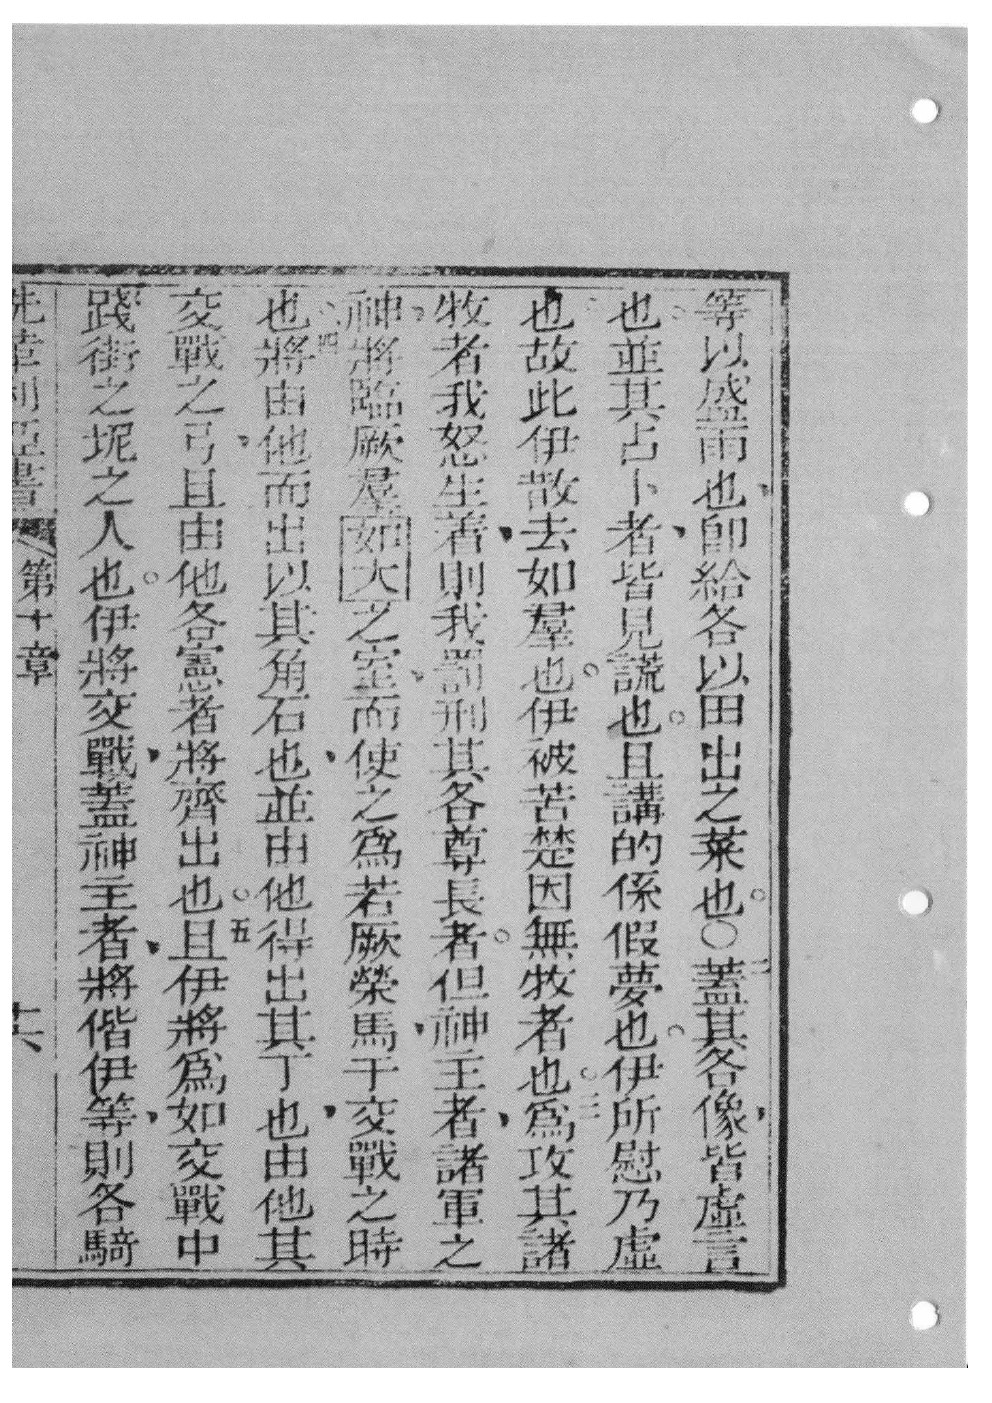 等以盛雨也、卽給各以田出之菜也。〇二蓋其各像、皆虛言
也。並其占卜者、皆見謊也。且講的係假夢也。伊所慰乃虛
也。故此伊散去、如羣也。伊被苦楚因無牧者也。三爲攻其諸
牧者我怒生着、則我罰刑其各尊長者。但神主者、諸軍之
神、將臨厥羣如大之室、而使之爲若厥榮馬、于交戰之時
也。四將由他而出以其角石也、並由他得出其丁也、由他其
交戰之弓、且由他各憲者將齊出也。五且伊將爲如交戰中
踐街之坭之人也。伊將交戰、蓋神主者、將偕伊等、則各騎
先革利亞書 第十章 共